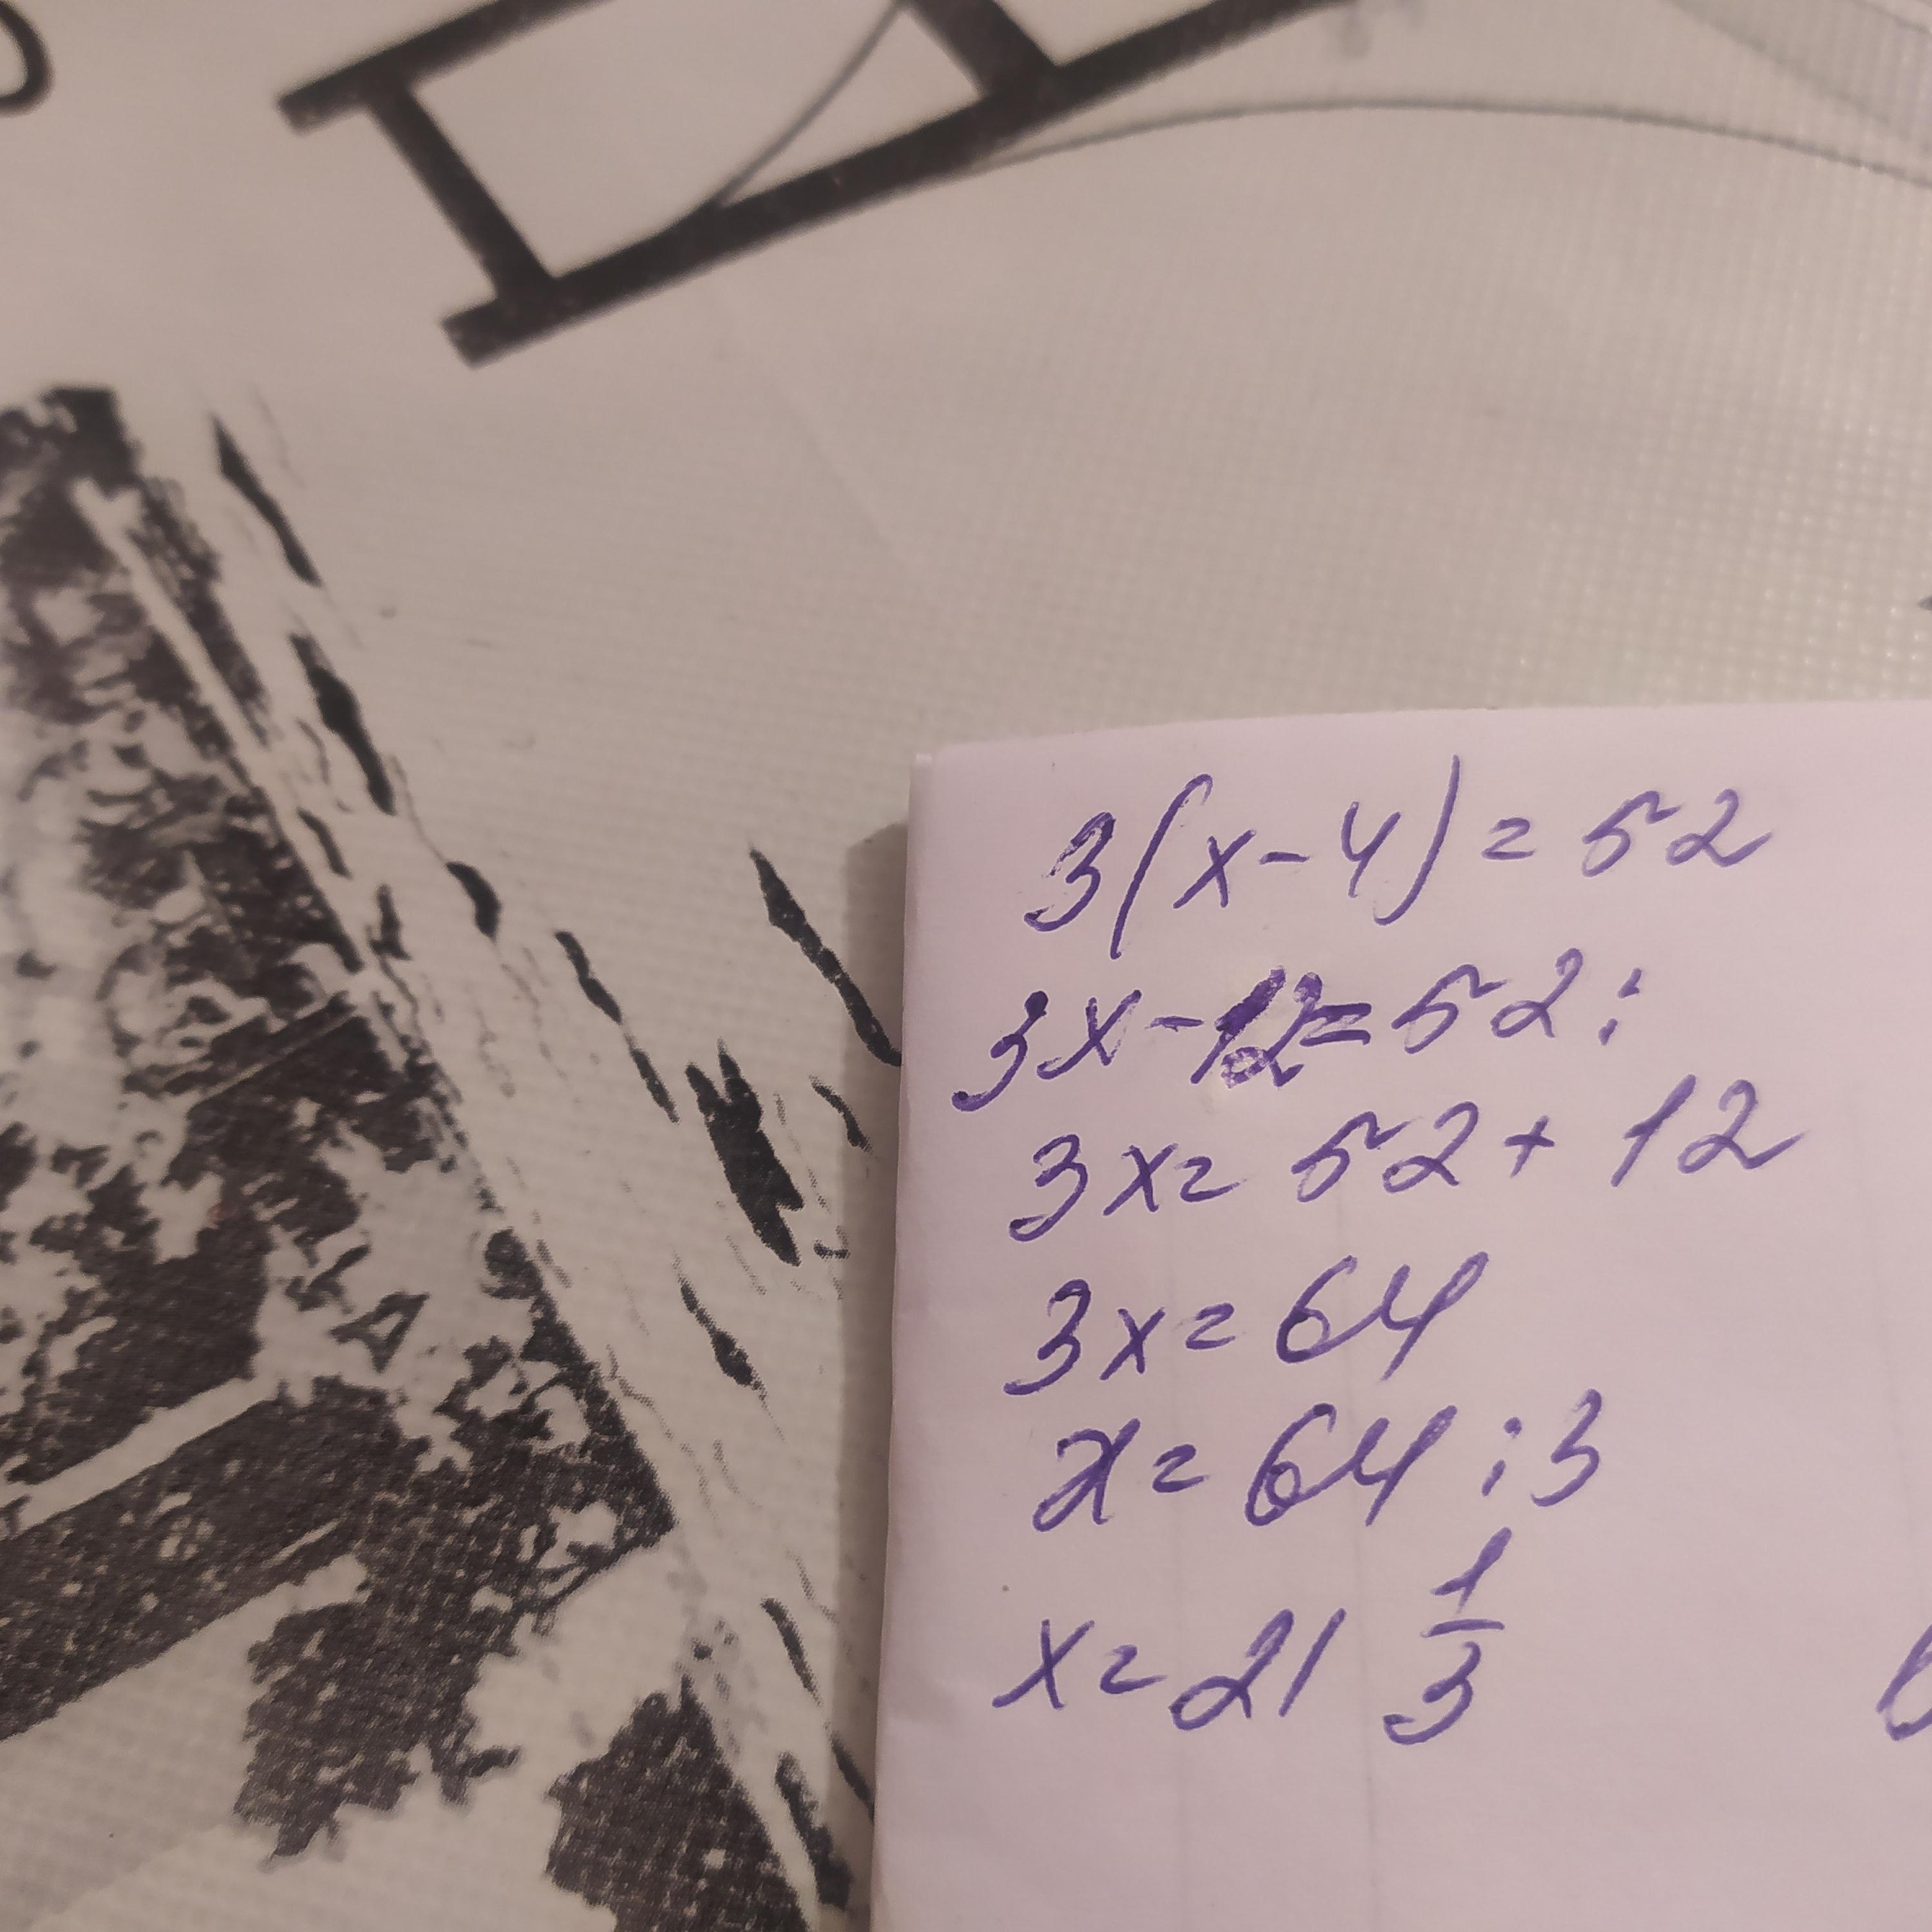 3(x-4)=52
3x-12=52:
3x=52+12
3x=64
x=64:3
x=21 1/3